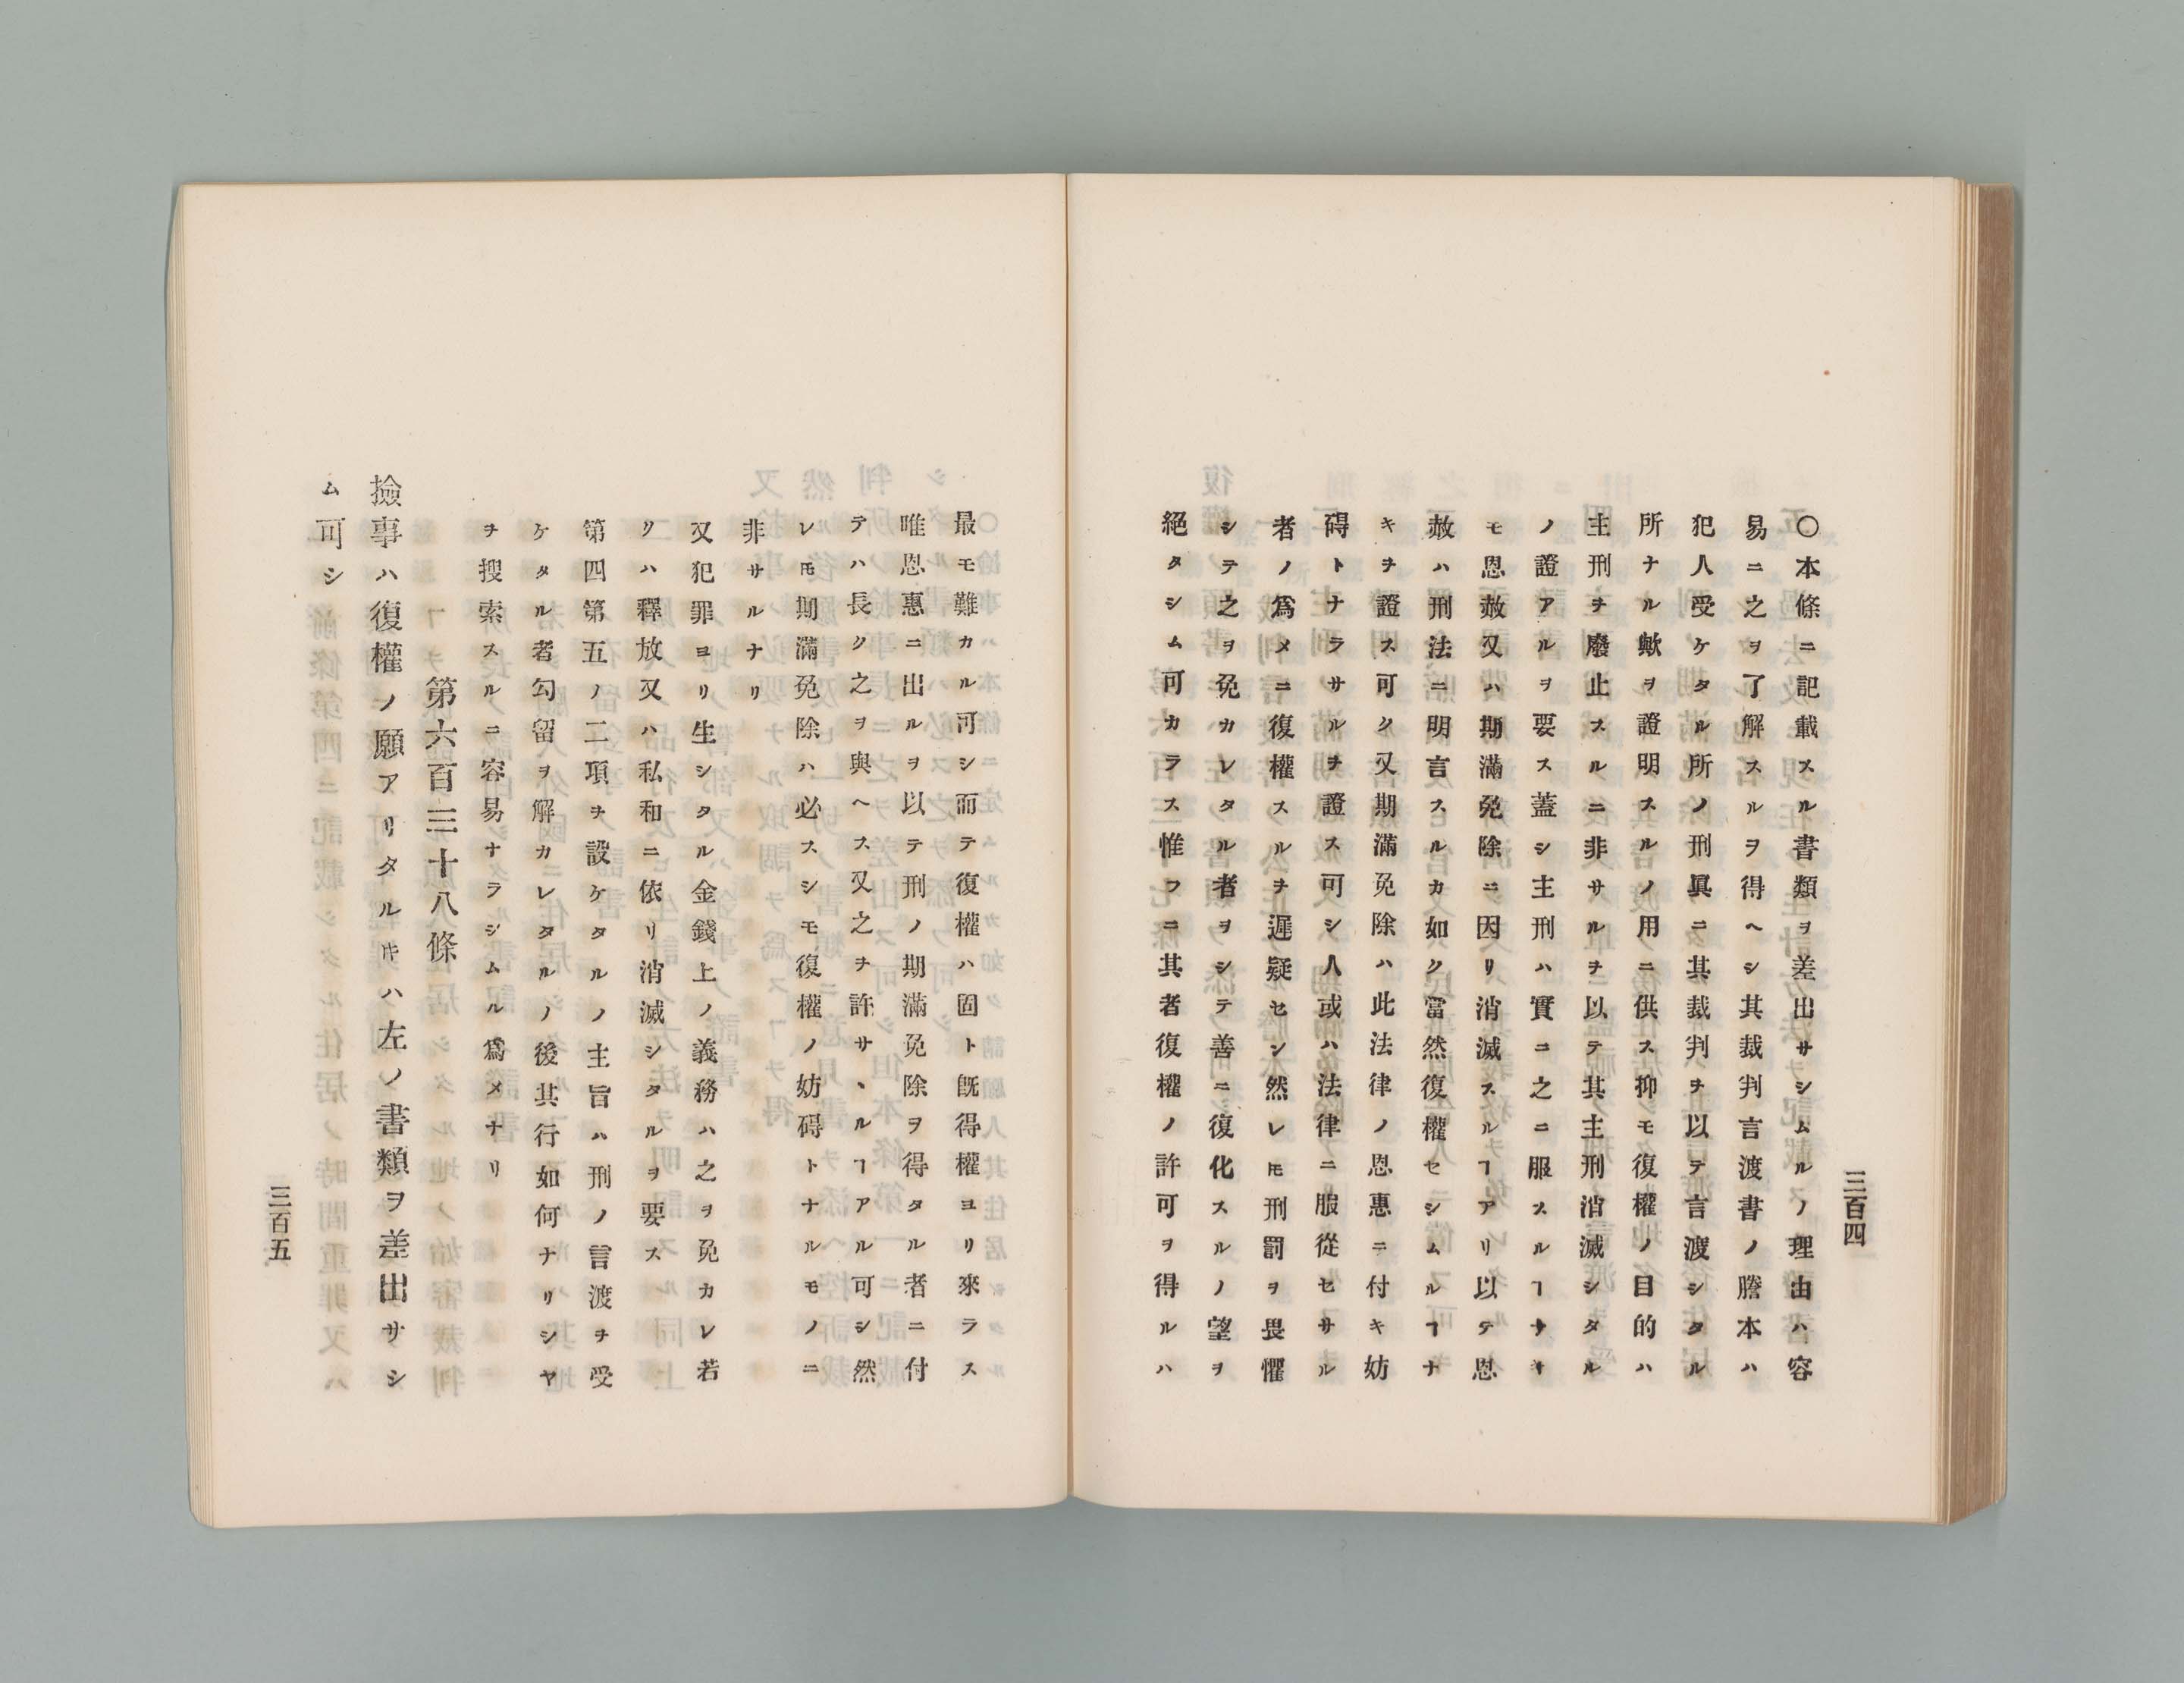 三百四
〇本條ニ記載スル書類ヲ差出サシムルノ理由ハ容
易ニ之ヲ了解スルヲ得ヘシ其裁判言渡書ノ謄本ハ
犯人受ケタル所ノ刑具ニ其裁判ヲ以テ言渡シタル
所ナル歟ヲ證明スルノ用ニ供ス抑モ復權ノ目的ハ
主刑ヲ廢止スルニ非サルヲ以テ其主刑消滅シタル
ノ證アルヲ要ス蓋シ主刑ハ實ニ之ニ服スルヿナキ
モ恩赦又ハ期滿免除ニ因リ消滅スルヿアリ以テ恩
赦ハ刑法ニ明言スルカ如ク當然復權セシムルヿナ
キヲ證ス可ク又期滿免除ハ此法律ノ恩惠ニ付キ妨
碍トナラサルヲ證ス可シ人或ハ法律ニ服從セサル
者ノ爲メニ復權スルヲ遲疑セン然レㆲ刑罰ヲ畏懼
シテ之ヲ免カレタル者ヲシテ善ニ復化スルノ望ヲ
絕タシム可カラス惟フニ其者復權ノ許可ヲ得ルハ
最モ難カル可シ而テ復權ハ固ト旣得權ヨリ來ラス
唯恩惠ニ出ルヲ以テ刑ノ期滿免除ヲ得タル者ニ付
テハ長ク之ヲ與ヘス又之ヲ許サヽルヿアル可シ然
レㆲ期滿免除ハ必スシモ復權ノ妨碍トナルモノニ
非サルナリ
又犯罪ヨリ生シタル金錢上ノ義務ハ之ヲ免カレ若
クハ釋放又ハ私和ニ依リ消滅シタルヲ要ス
第四第五ノ二項ヲ設ケタルノ主旨ハ刑ノ言渡ヲ受
ケタル者勾留ヲ解カレタルノ後其行如何ナリシヤ
ヲ搜索スルニ容易ナラシムル爲メナリ
第六百三十八條
撿事ハ復權ノ願アリタルㆲハ左ノ書類ヲ差出サシ
ム可シ
三百五